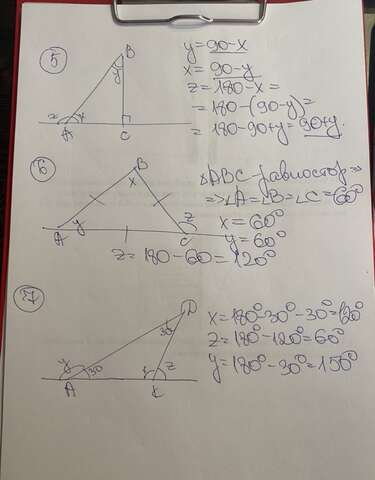 5
B
y
z
x
A
C
y = 90-x
x = 90-y
z = 180-x =
= 180-(90-y) =
= 180-90+y = 90+y.
6
B
x
y
A
z
C
△ABC - равностор ⇒
⇒ ∠A = ∠B = ∠C = 60°
x = 60°
y = 60°
z = 180 - 60 = 120°
7
D
30
y
30
z
A
x = 180°-30°-30° = 120°
z = 180°-120° = 60°
y = 180°-30° = 150°